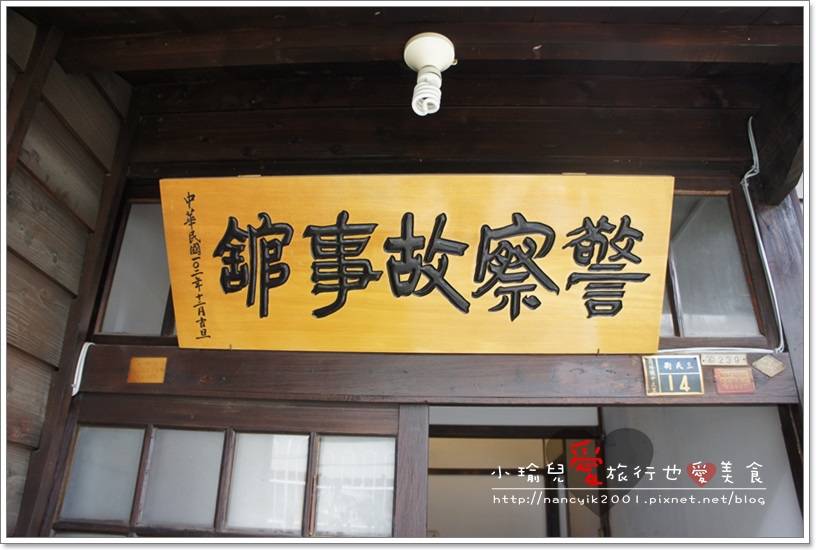 警察故事館
中華民國一0二年十二月吉旦
三民街
14
239
小瑜兒愛旅行也愛美食
http://nancyik2001.pixnet.net/blog